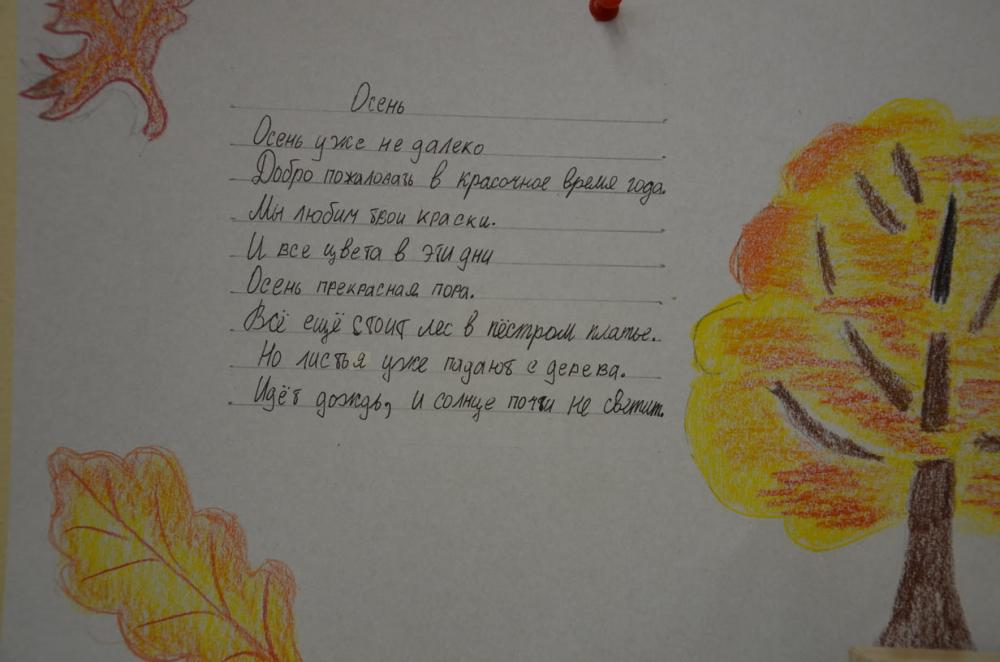 Осень
Осень уже не далеко
Добро пожаловать в красочное время года.
Мы любим твои краски.
И все цвета в эти дни
Осень прекрасная пора.
Всё ещё стоит лес в пёстром платье.
Но листья уже падают с дерева.
Идёт дождь, и солнце почти не светит.